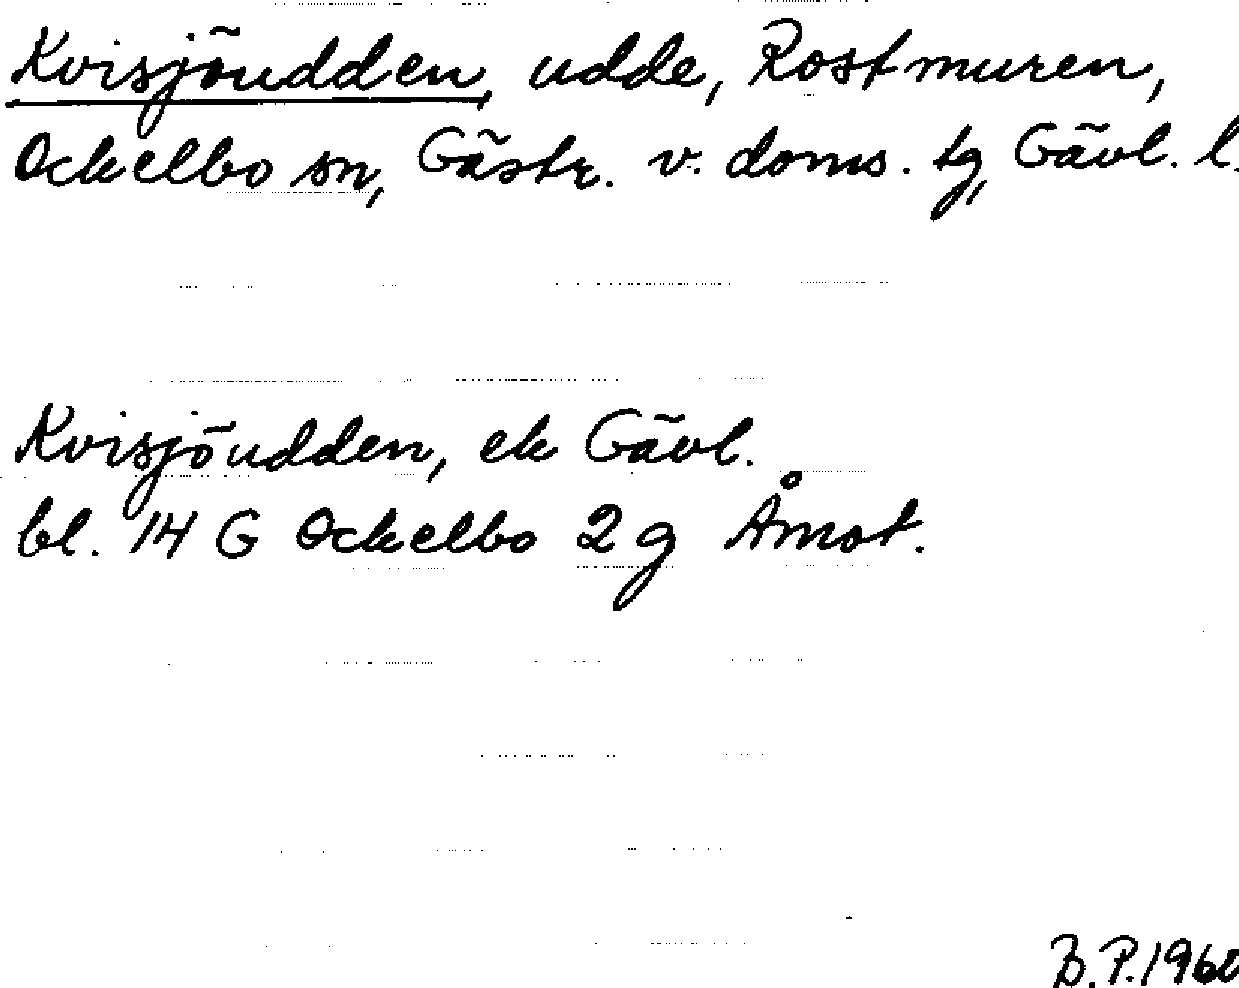 Kvisjöudden, udde, Rostmuren,
Ockelbo sn, Gästr. v. doms. tg, Gävl. l.
Kvisjöudden, ek Gävl.
bl. 14 G Ockelbo 2 g Åmot.
B.P. 1960